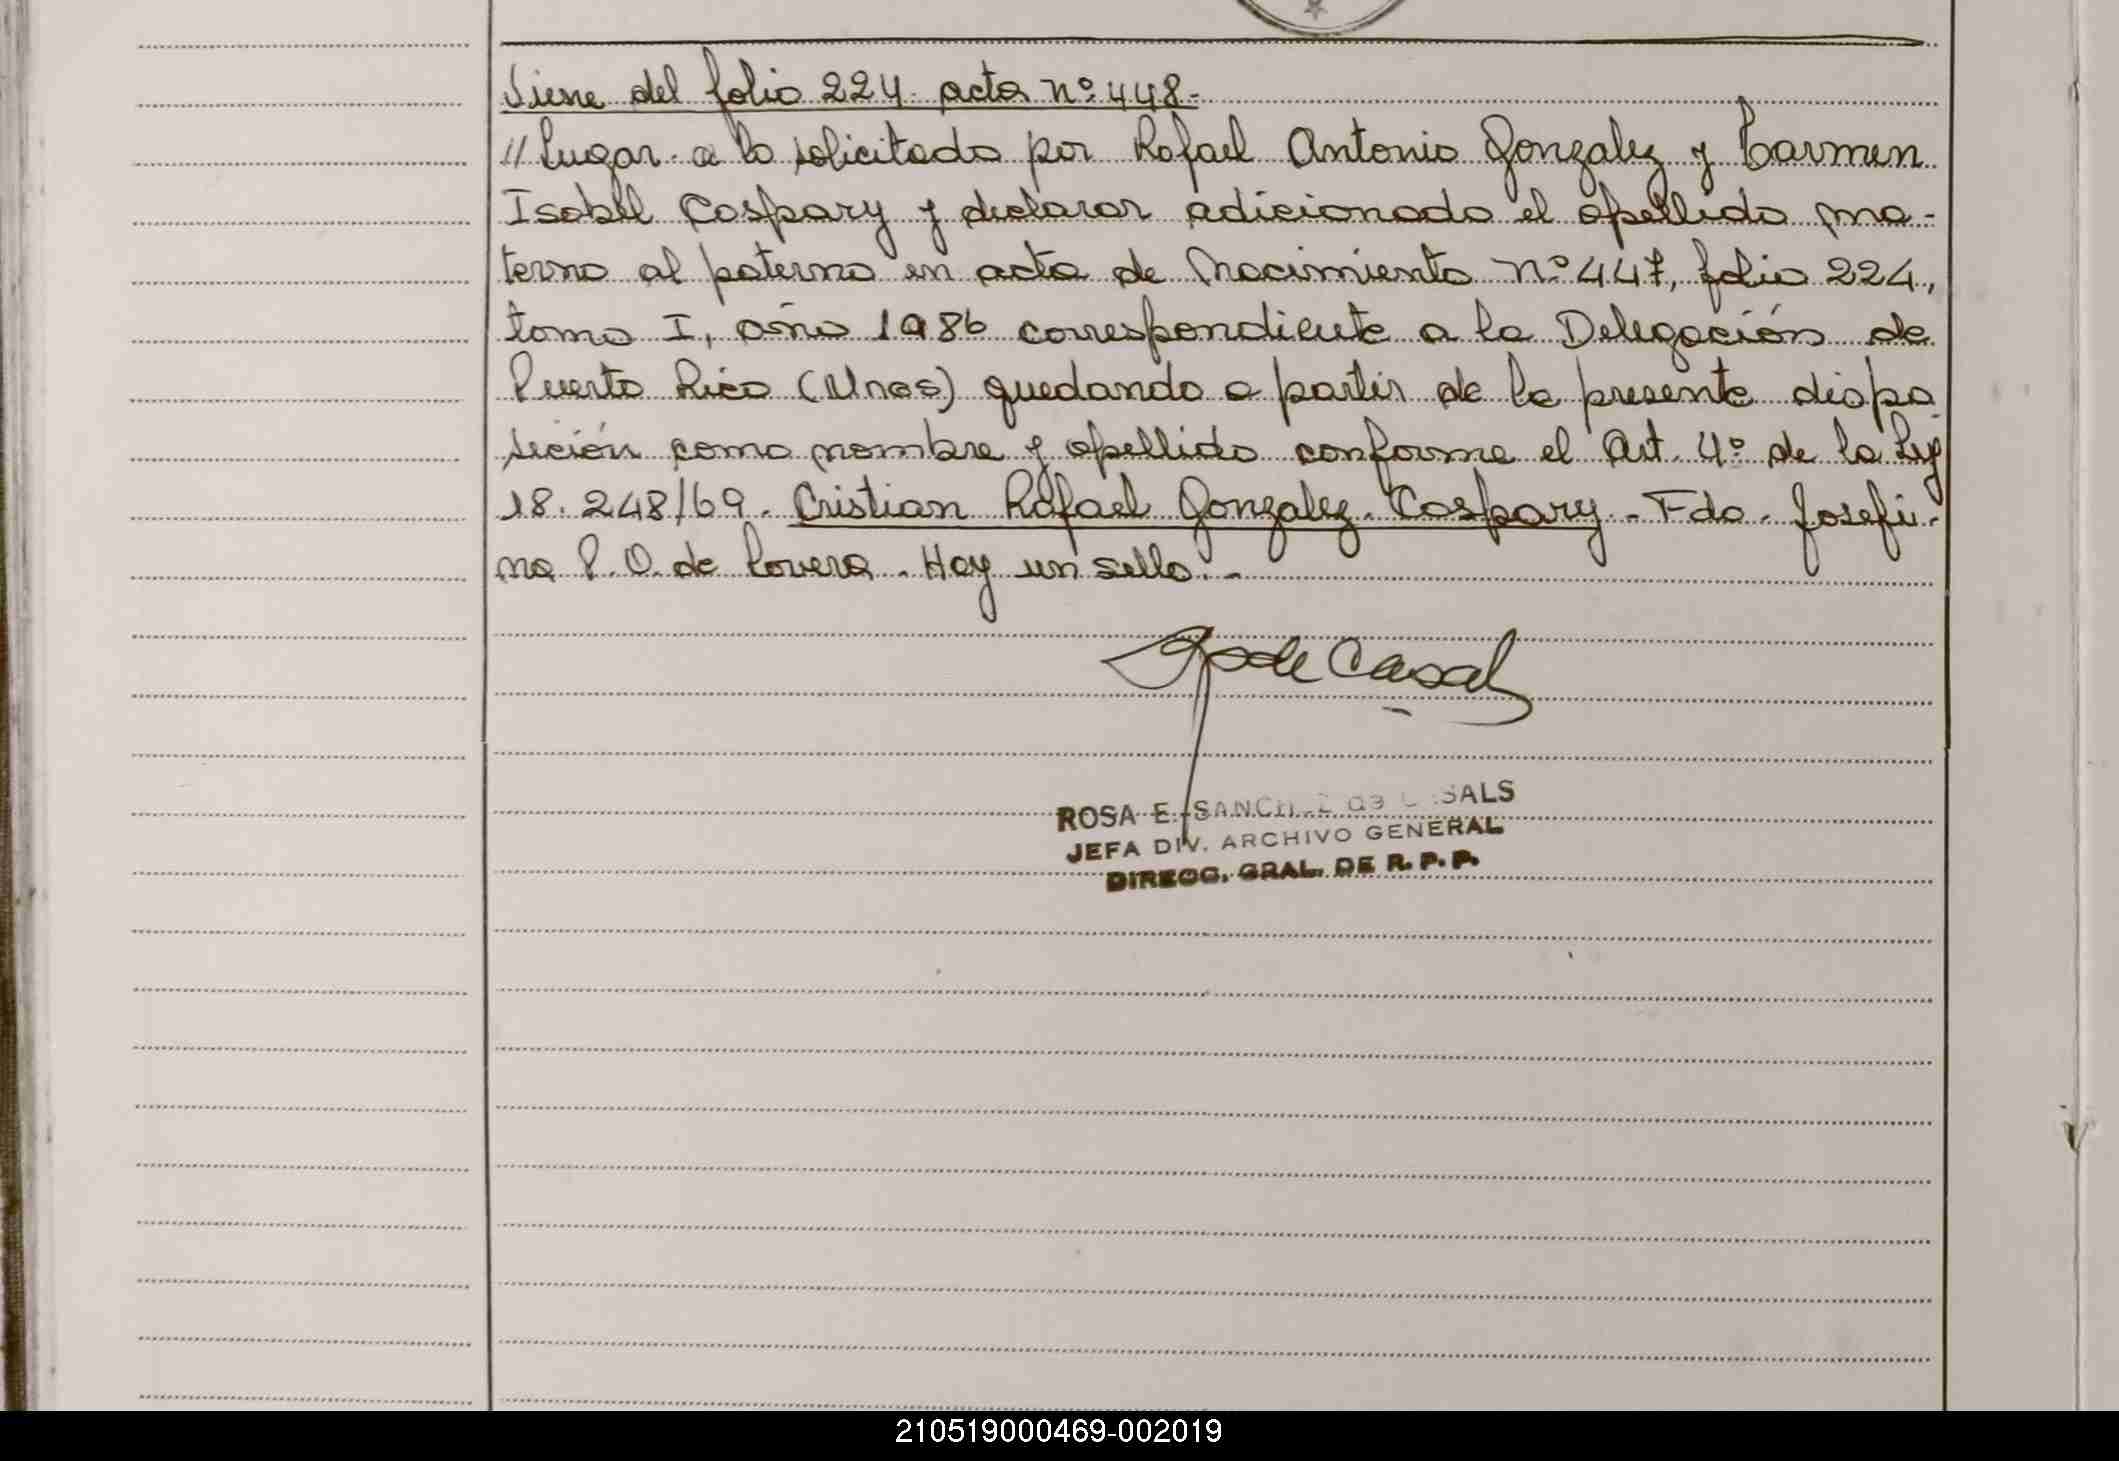 Viene del folio 224 acta nº 448.-
// Lugar a lo solicitado por Rafael Antonio Gonzalez y Carmen
Isabel Caspary y declarar adicionado el apellido ma-
terno al paterno en acta de Nacimiento Nº 447, folio 224,
tomo I, año 1986 correspondiente a la Delegación de
Puerto Rico (Mnes) quedando a partir de la presente dispo
sición como nombre y apellido conforme el Art. 4º de la Ley
18.248/69. Cristian Rafael Gonzalez Caspary - Fdo. Josefi-
na P. O. de Lovera. Hay un sello.-
de Casals
ROSA E. SANCHEZ de CASALS
JEFA DIV. ARCHIVO GENERAL
DIRECC. GRAL. DE R. P. P.
210519000469-002019